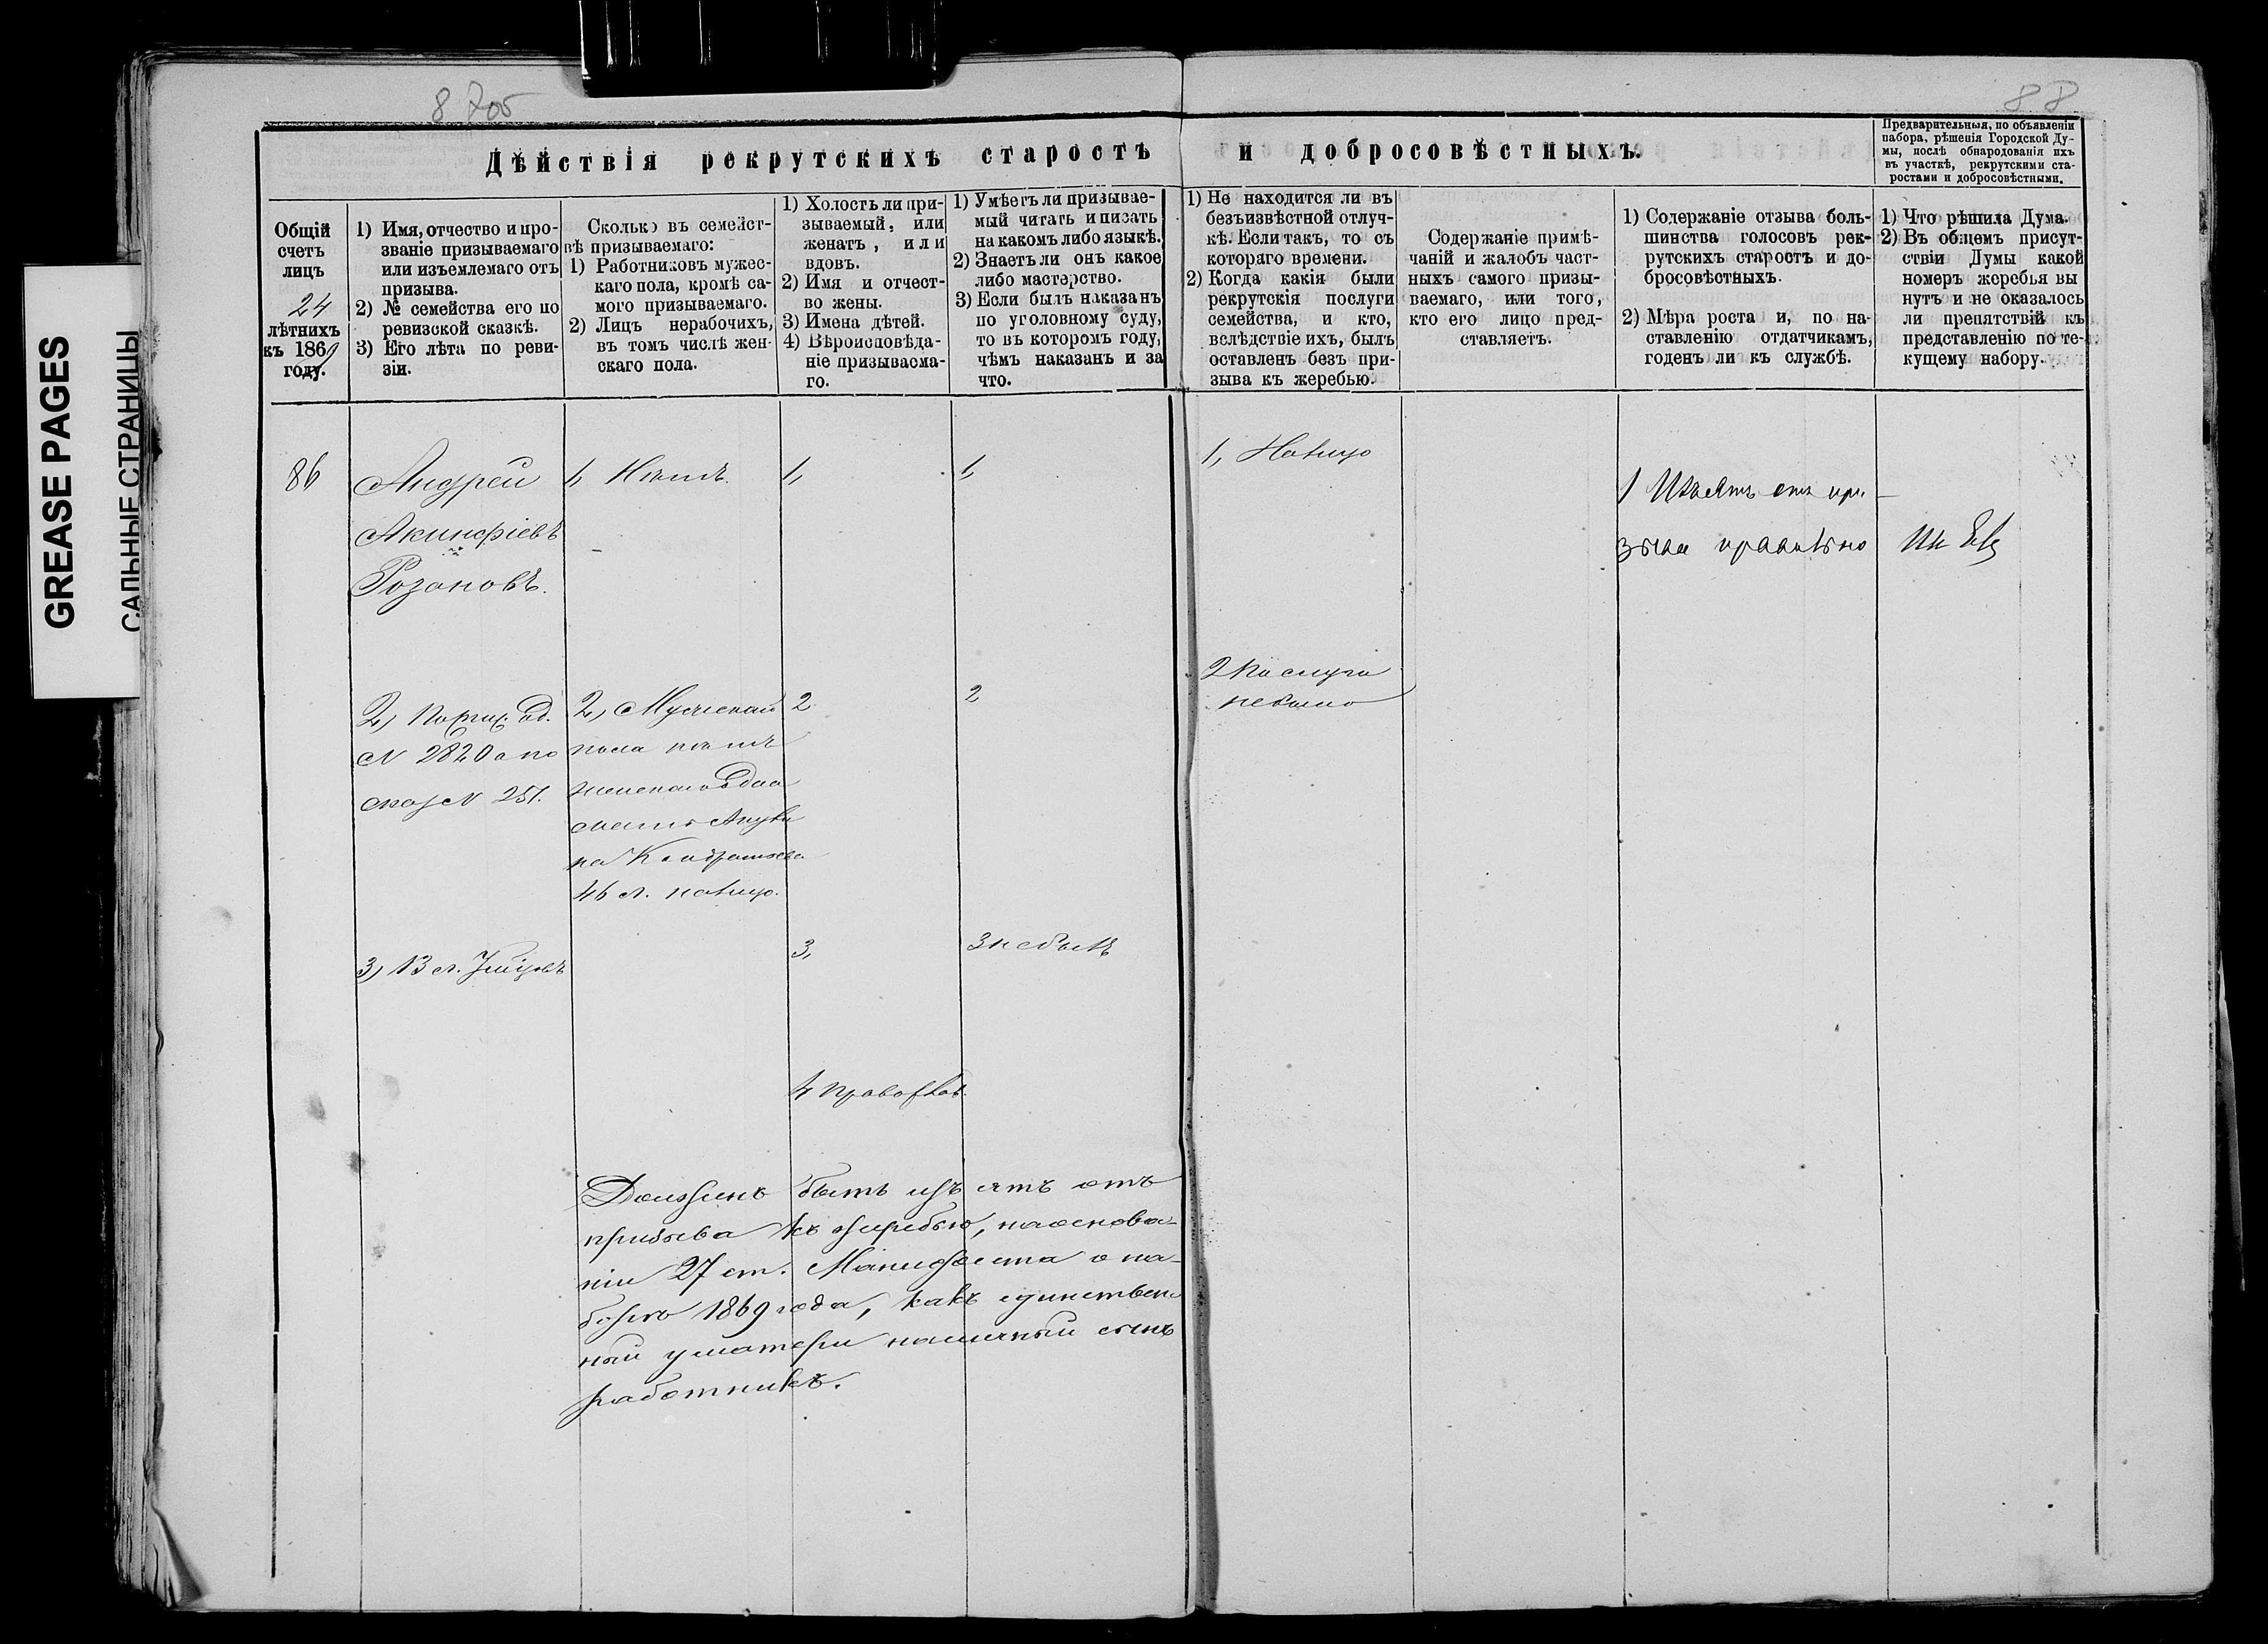 GREASE PAGES
САЛЬНЫЕ СТРАНИЦЫ
88
Дѣйствія рекрутскихъ старостъ и добросовѣстныхъ.
Предварительныя, по объявленіи
набора, рѣшенія Городской Ду-
мы, послѣ обнародованія ихъ
въ участкѣ, рекрутскими ста-
ростами и добросовѣстными.
Общій
счетъ
лицъ
24
лѣтнихъ
къ 1869
году.
1) Имя, отчество и про-
званіе призываемаго
или изъемлемаго отъ
призыва.
2) № семейства его по
ревизской сказкѣ.
3) Его лѣта по реви-
зіи.
Сколько въ семейст-
вѣ призываемаго:
1) Работниковъ мужес-
каго пола, кромѣ са-
мого призываемаго.
2) Лицъ нерабочихъ,
въ томъ числѣ жен-
скаго пола.
1) Холостъ ли при-
зываемый, или
женатъ, или
вдовъ.
2) Имя и отчест-
во жены.
3) Имена дѣтей.
4) Вѣроисповѣда-
ніе призываема-
го.
1) Умѣетъ ли призывае-
мый читать и писать
на какомъ либо языкѣ.
2) Знаетъ ли онъ какое
либо мастерство.
3) Если былъ наказанъ
по уголовному суду,
то въ которомъ году,
чѣмъ наказанъ и за
что.
1) Не находится ли въ
безъизвѣстной отлуч-
кѣ. Если такъ, то съ
котораго времени.
2) Когда какія были
рекрутскія послуги
семейства, и кто,
вслѣдствіе ихъ, былъ
оставленъ безъ при-
зыва къ жеребью.
Содержаніе примѣ-
чаній и жалобъ част-
ныхъ самого призы-
ваемаго, или того,
кто его лицо пред-
ставляетъ.
1) Содержаніе отзыва боль-
шинства голосовъ рек-
рутскихъ старостъ и до-
бросовѣстныхъ.
2) Мѣра роста и, по на-
ставленію отдатчикамъ,
годенъ ли къ службѣ.
1) Что рѣшила Дума.
2) Въ общемъ присут-
ствіи Думы какой
номеръ жеребья вы
нутъ и не оказалось
ли препятствій къ
представленію по те-
кущему набору.
86
Андрей
Акинфіевъ
Розановъ.
2)
N 2820 а по
N 251.
3) 13 л.
1, Нѣтъ.
2, Мужскаго
пола нѣтъ
женскаго
мать
Кондратьева
46 л. налицо.
1,
2
3,
4 Правосл
1,
2
3 небылъ
1, Налицо
2 Послуги
небыло
1 Изъятъ отъ при-
зыва правильно
Долженъ быть изъятъ отъ
призыва къ жеребью, наоснова-
ніи 27 ст. Манифеста о на-
борѣ 1869 года, какъ единствен
ный уматери наличный сынъ
работникъ.